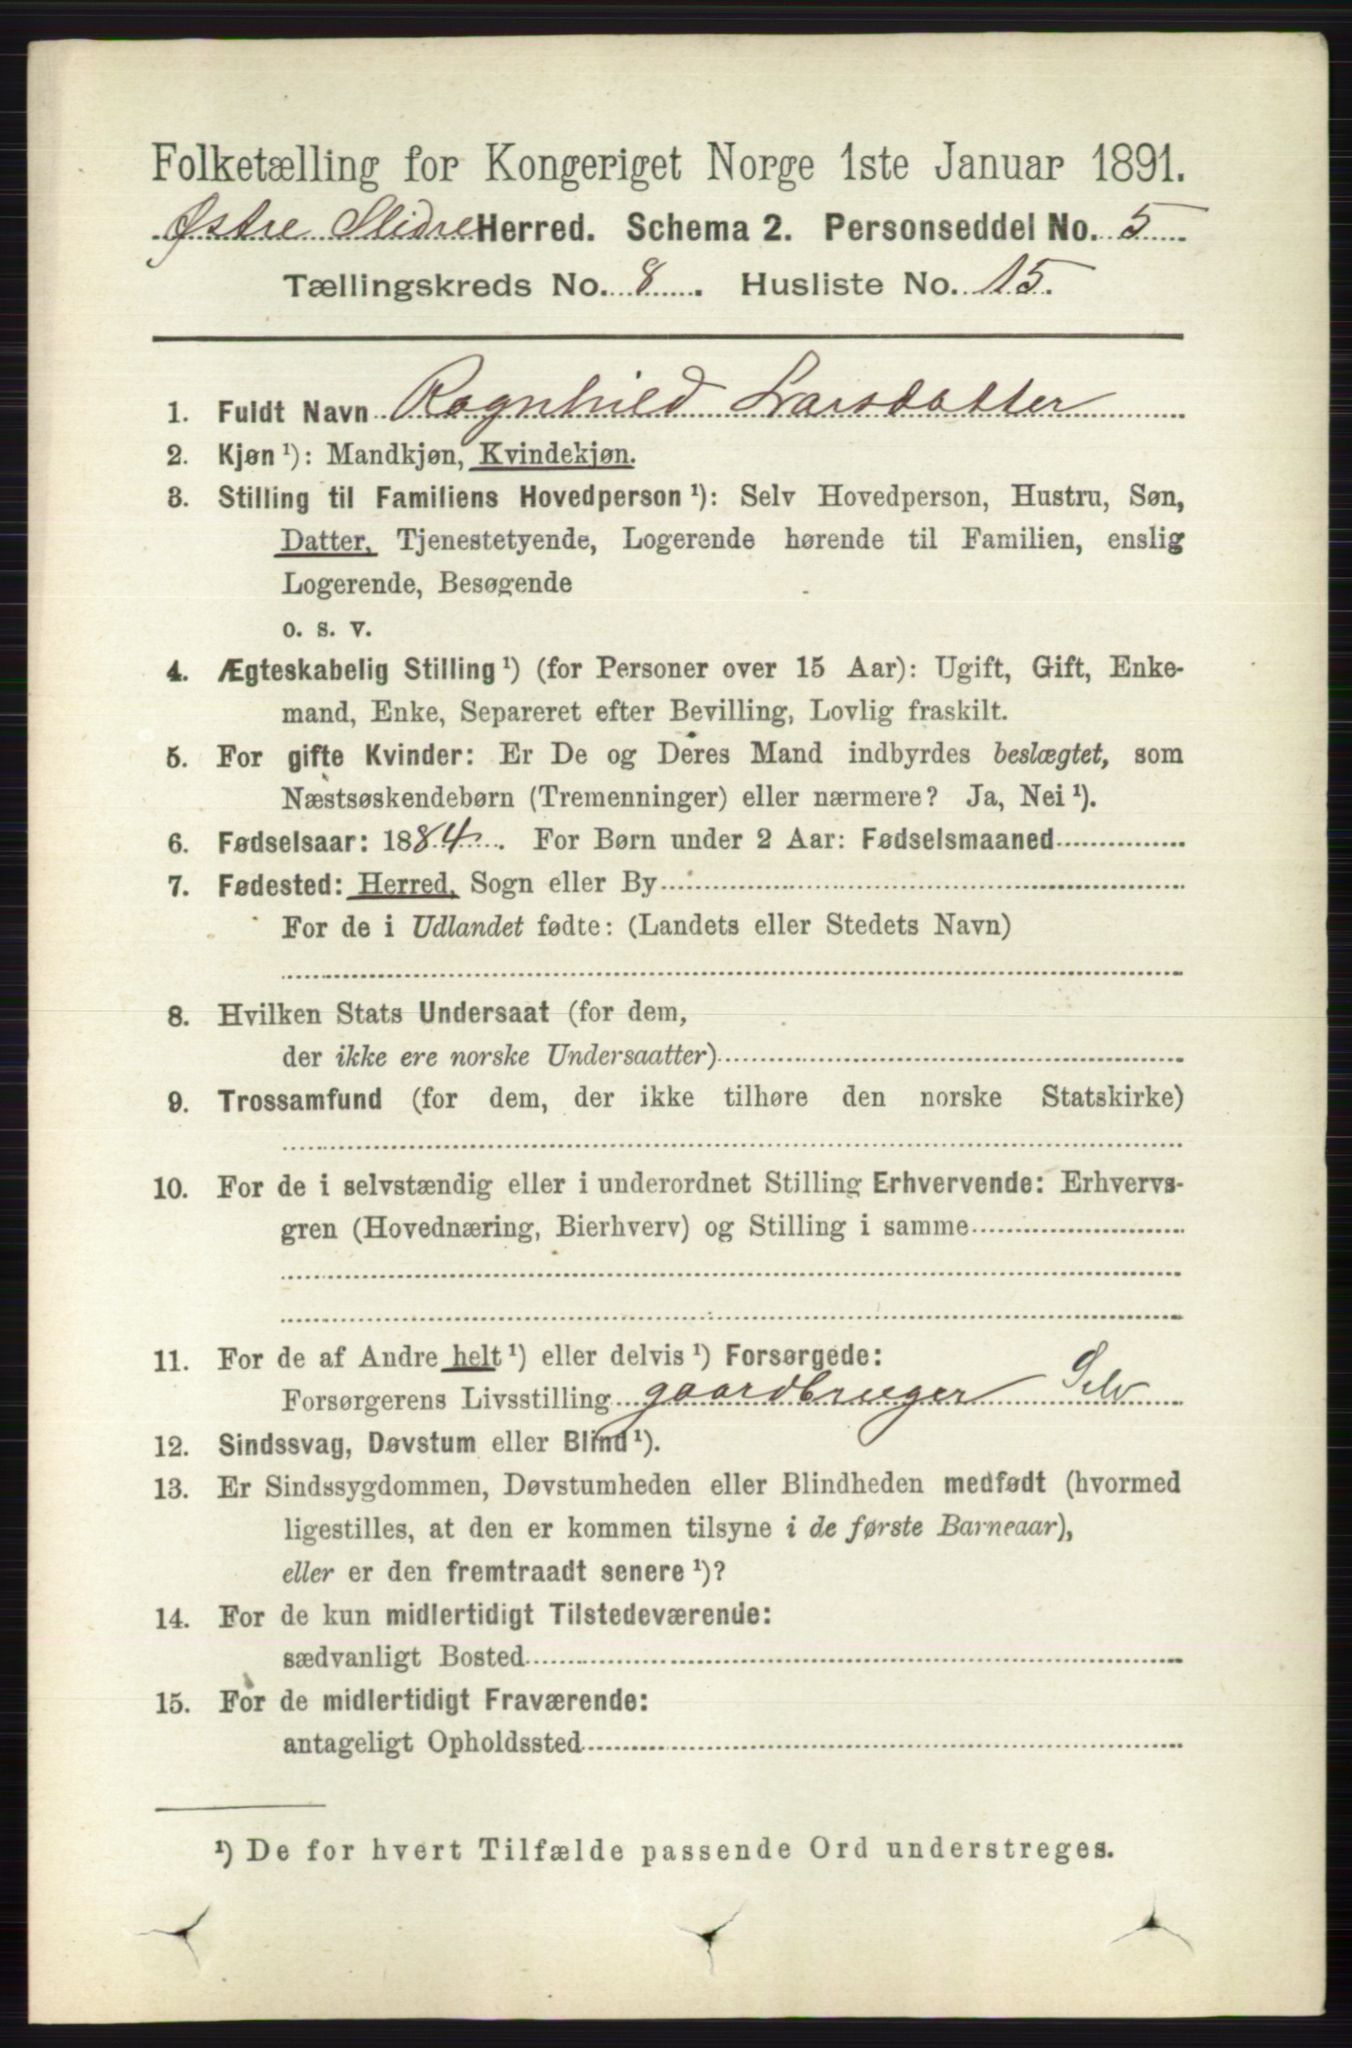 Folketælling for Kongeriget Norge 1ste Januar 1891.
Østre Slidre Herred. Schema 2. Personseddel No. 5
Tællingskreds No. 8. Husliste No. 15.
1. Fuldt Navn Ragnhild Larsdatter
2. Kjøn ¹): Mandkjøn, Kvindekjøn.
3. Stilling til Familiens Hovedperson ¹): Selv Hovedperson, Hustru, Søn,
Datter, Tjenestetyende, Logerende hørende til Familien, enslig
Logerende, Besøgende
o. s. v.
4. Ægteskabelig Stilling ¹) (for Personer over 15 Aar): Ugift, Gift, Enke-
mand, Enke, Separeret efter Bevilling, Lovlig fraskilt.
5. For gifte Kvinder: Er De og Deres Mand indbyrdes beslægtet, som
Næstsøskendebørn (Tremenninger) eller nærmere? Ja, Nei ¹).
6. Fødselsaar: 1884. For Børn under 2 Aar: Fødselsmaaned
7. Fødested: Herred, Sogn eller By
For de i Udlandet fødte: (Landets eller Stedets Navn)
8. Hvilken Stats Undersaat (for dem,
der ikke ere norske Undersaatter)
9. Trossamfund (for dem, der ikke tilhøre den norske Statskirke)
10. For de i selvstændig eller i underordnet Stilling Erhvervende: Erhvervs-
gren (Hovednæring, Bierhverv) og Stilling i samme
11. For de af Andre helt ¹) eller delvis ¹) Forsørgede:
Forsørgerens Livsstilling gaardbruger Selv
12. Sindssvag, Døvstum eller Blind ¹).
13. Er Sindssygdommen, Døvstumheden eller Blindheden medfødt (hvormed
ligestilles, at den er kommen tilsyne i de første Barneaar),
eller er den fremtraadt senere ¹)?
14. For de kun midlertidigt Tilstedeværende:
sædvanligt Bosted
15. For de midlertidigt Fraværende:
antageligt Opholdssted
¹) De for hvert Tilfælde passende Ord understreges.